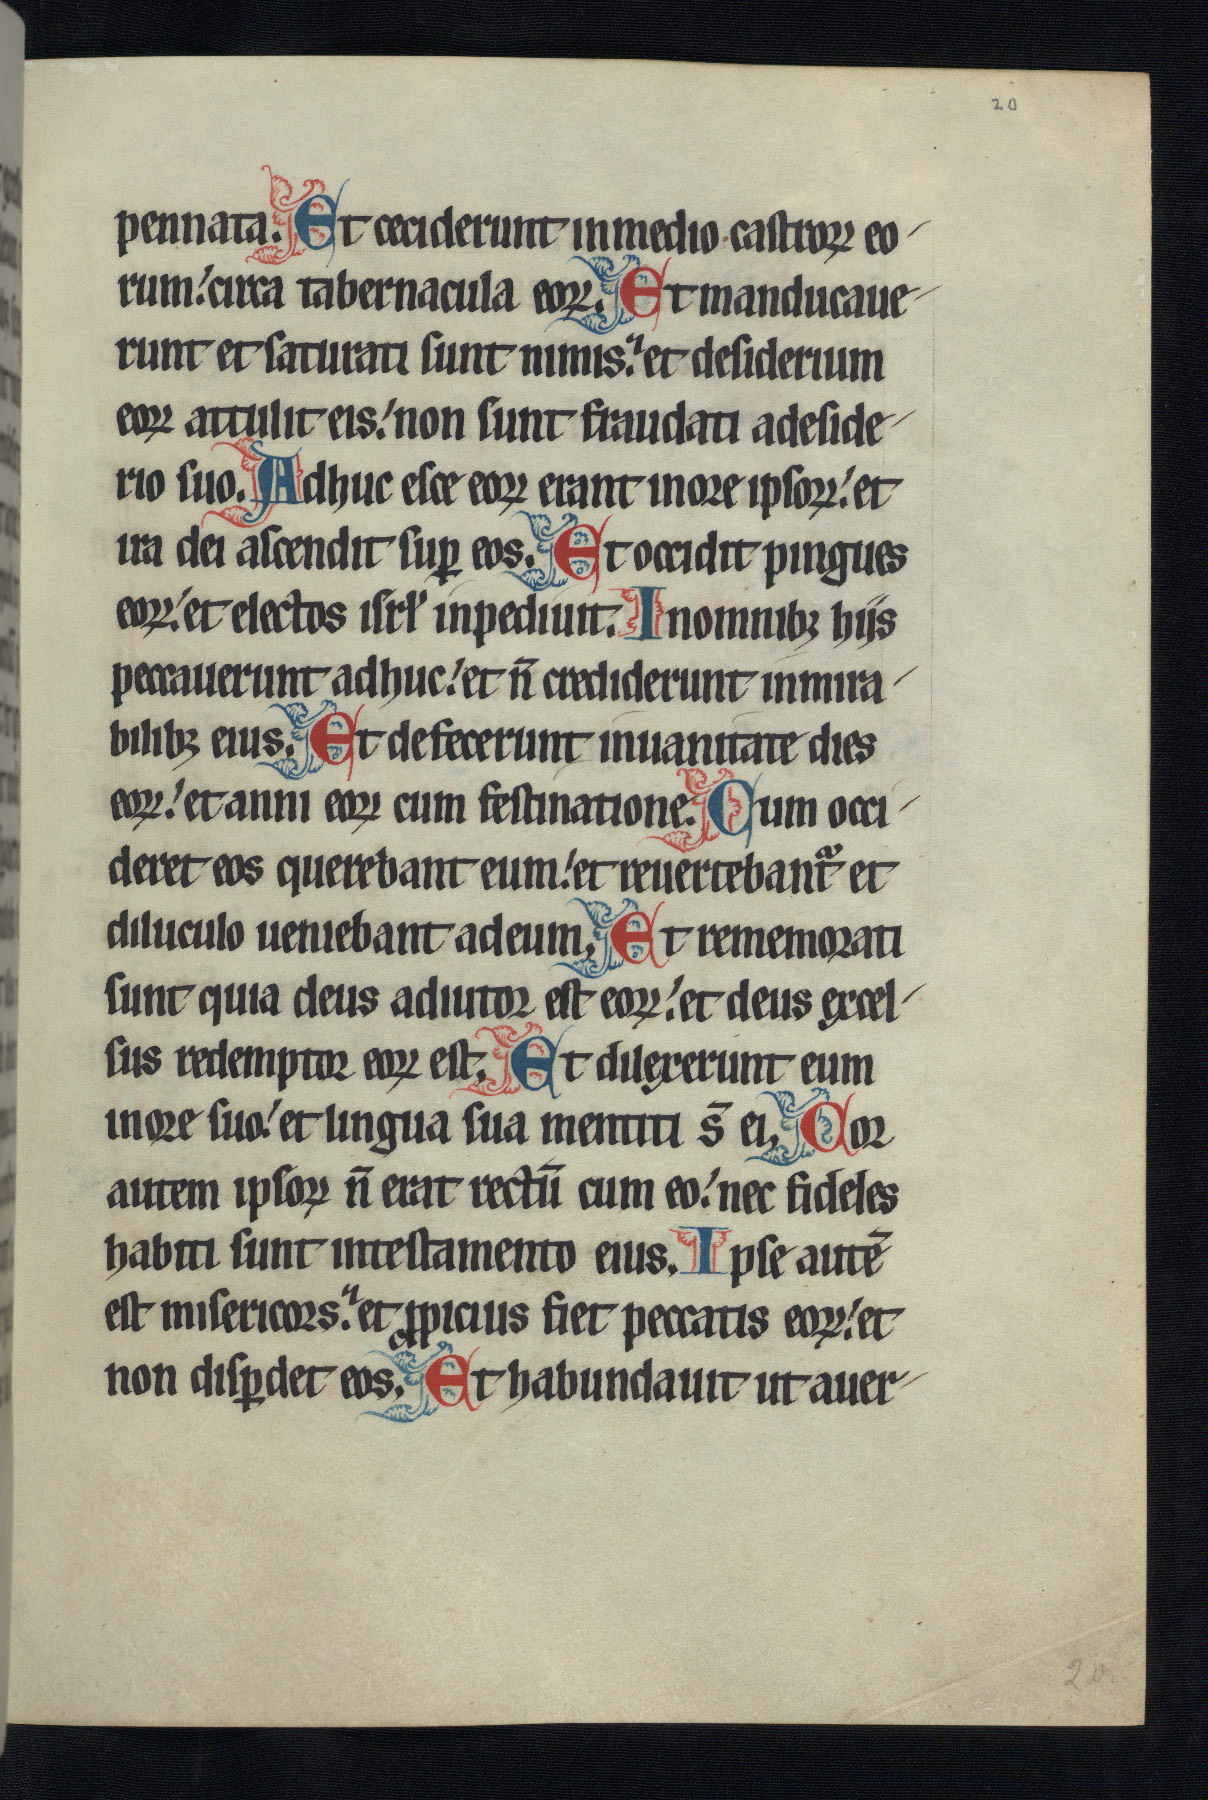 20
pennata. Et ceciderunt in medio castroꝝ eo-
rum: circa tabernacula eoꝝ. Et manducaue-
runt et saturati sunt nimis: et desiderium
eoꝝ attulit eis: non sunt fraudati a deside-
rio suo. Adhuc esce eoꝝ erant in ore ipsoꝝ: et
ira dei ascendit suꝑ eos. Et occidit pingues
eoꝝ: et electos isrl̓ inpediuit. In omnibꝫ hijs
peccauerunt adhuc: et n̄ crediderunt in mira-
bilibꝫ eius. Et defecerunt in uanitate dies
eoꝝ: et anni eoꝝ cum festinatione. Cum occi-
deret eos querebant eum: et reuertebant᷑ et
diluculo ueniebant ad eum. Et rememorati
sunt quia deus adiutor est eoꝝ: et deus excel-
sus redemptor eoꝝ est. Et dilexerunt eum
in ore suo: et lingua sua mentiti s̄ ei. Cor
autem ipsoꝝ n̄ erat rectū cum eo: nec fideles
habiti sunt in testamento eius. Ipse autē
est misericors: et ꝓpicius fiet peccatis eoꝝ: et
non disꝑdet eos. Et habundauit ut auer-
20.